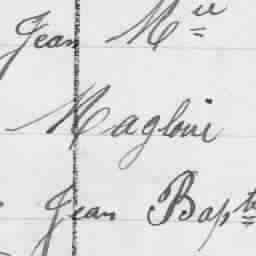 Jean Mel
Magloire
Jean Bapte